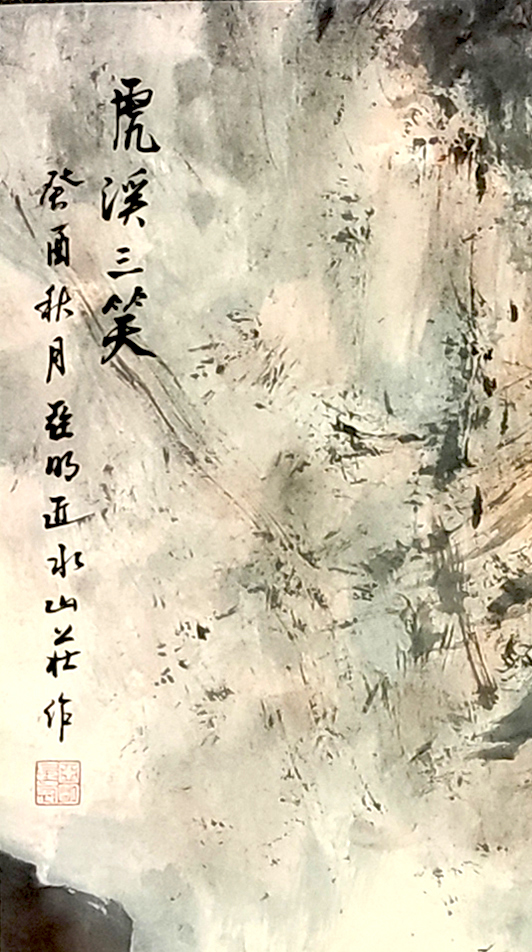 虎溪三笑
癸酉秋月亞明近水山莊作